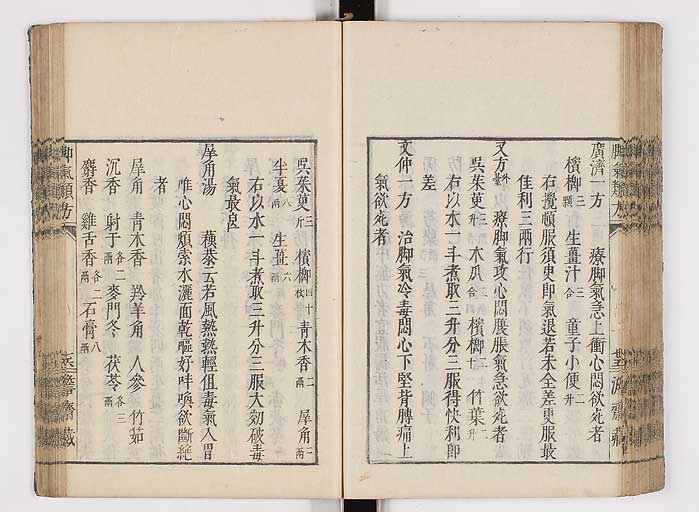 廣濟一方 療脚氣急上衝心悶欲死者
檳榔三顆 生薑汁三合 童子小便二升
右攪頓服須臾即氣退若未全差更服最
佳利三兩行
又方 療脚氣攻心悶腹脹氣急欲死者
吳茱萸三升 木瓜二合 檳榔二十 竹葉二升
右以水一斗煮取三升分三服得快利即
差
文仲一方 治脚氣冷毒悶心下堅背膊痛上
氣欲死者
吳茱萸三斤 檳榔四十枚 青木香二兩 犀角二兩
半夏八兩 生薑六兩
右以水一斗煮取三升分三服大効破毒
氣最良
犀角湯 蘓恭云若風熱輕但毒氣入胃
唯心悶煩索水灑面乾嘔好呼喚欲斷絕
者
犀角 青木香 羚羊角 人參 竹茹
沉香 射干各二兩 麥門冬 茯苓各三兩
麝香 雞舌香各二兩 石膏八兩
脚氣類方
脚氣類方